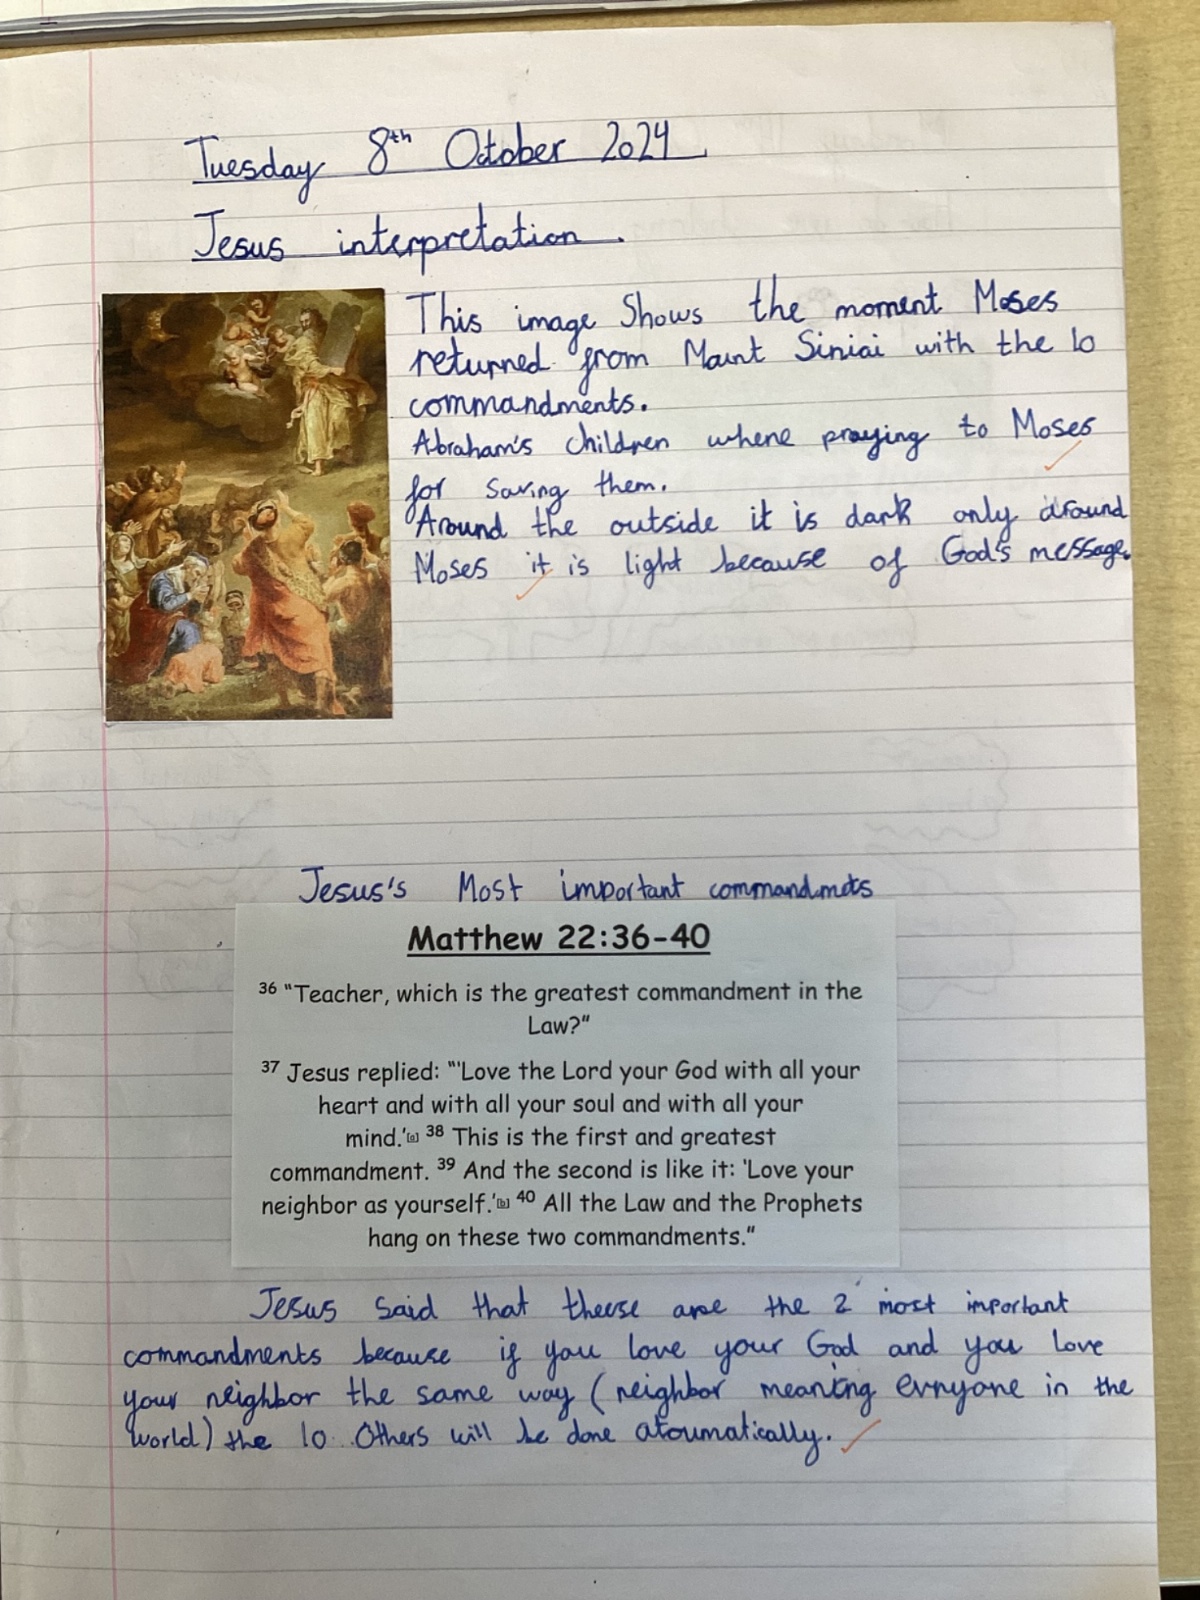 Tuesday 8th October 2024
Jesus interpretation.
This image Shows the moment Moses
returned from Mount Siniai with the 10
commandments.
Abraham's children where praying to Moses
for saving them.
Around the outside it is dark only around
Moses it is light because of God's message.
Jesus's Most important commandmets
Matthew 22:36-40
36 "Teacher, which is the greatest commandment in the
Law?"
37 Jesus replied: "'Love the Lord your God with all your
heart and with all your soul and with all your
mind.'[a] 38 This is the first and greatest
commandment. 39 And the second is like it: 'Love your
neighbor as yourself.'[b] 40 All the Law and the Prophets
hang on these two commandments."
Jesus said that theese are the 2 most important
commandments because if you love your God and you love
your neighbor the same way (neighbor meaning evryone in the
world) the 10 Others will be done atoumatically.